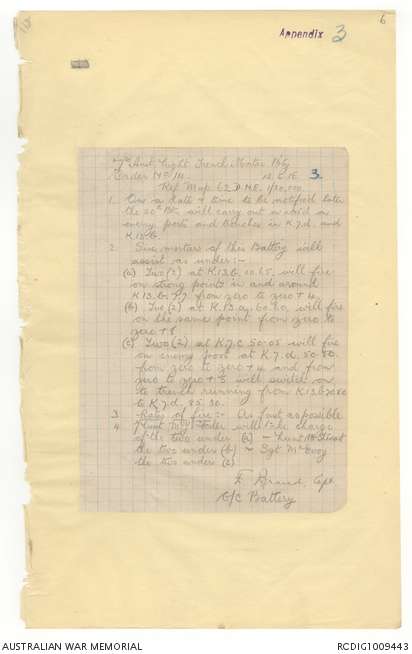 6
Appendix 3
7th Aust Light Trench Mortar Bty
Order No 111. 3
Ref Map 62 D.N.E. 1/20,000
1. On a date & time to be notified later
the 26th Bn. will carry out a raid on
enemy posts and trenches in K.7.d. and
K.13.b
2. Six mortars of this Battery will
assist as under:-
(a) Two (2) at K13.b. 20.65. will fire
on strong points in and around
K13.b. from zero to zero + 4.
(b) Two (2) at K.13.a. 60.90. will fire
on the same point from zero to
zero + 8
(c) Two (2) at K.7.c 50.05 will fire
on enemy post at K.7.d. 50.80.
from zero to zero + 4 and from
zero to zero + 8 will switch on
to trench running from K13.b
to K.7.d. 85.30.
3 Rates of fire:- As fast as possible
4 Lieut will be in charge
of the two under (a) - Lieut
the two under (b) - Sgt McEvoy
the two under (c)
F. Capt.
O/C Battery
AUSTRALIAN WAR MEMORIAL
RCDIG1009443